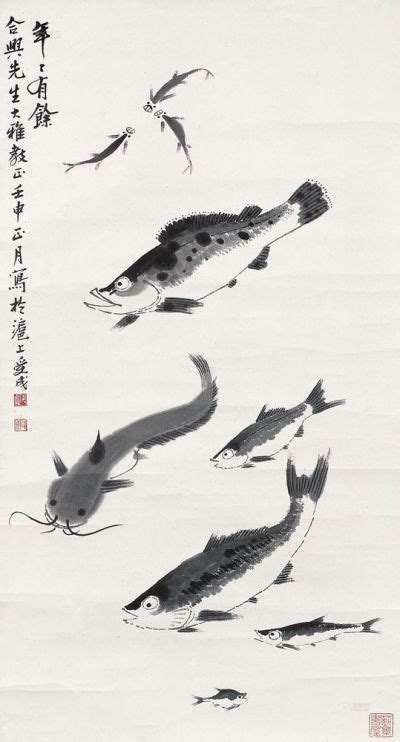 年〻有餘
合興先生大雅教正壬申正月寫於滬上